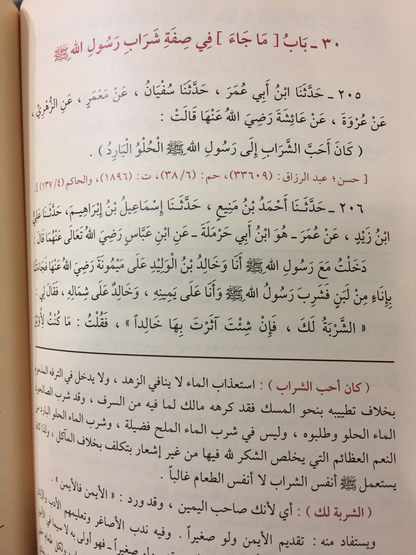 ٣٠ ـ بَابُ [ مَا جَاءَ ] فِي صِفَةِ شَرَابِ رَسُولِ اللهِ ﷺ
٢٠٥ ـ حَدَّثَنَا ابْنُ أَبِي عُمَرَ ، حَدَّثَنَا سُفْيَانُ ، عَنْ مَعْمَرٍ ، عَنِ الزُّهْرِيِّ ،
عَنْ عُرْوَةَ ، عَنْ عَائِشَةَ رَضِيَ اللهُ عَنْهَا قَالَتْ :
( كَانَ أَحَبَّ الشَّرَابِ إِلَى رَسُولِ اللهِ ﷺ الْحُلْوُ الْبَارِدُ ) .
[ حسن؛ عبد الرزاق: (٣٣٦٠٩)، حم: (٣٨/٦)، ت: (١٨٩٦)، والحاكم (١٣٧/٤) ] .
٢٠٦ ـ حَدَّثَنَا أَحْمَدُ بْنُ مَنِيعٍ ، حَدَّثَنَا إِسْمَاعِيلُ بْنُ إِبْرَاهِيمَ، حَدَّثَنَا عَلِيُّ
ابْنُ زَيْدٍ ، عَنْ عُمَرَ ـ هُوَ ابْنُ أَبِي حَرْمَلَةَ ـ عَنِ ابْنِ عَبَّاسٍ رَضِيَ اللهُ تَعَالَى عَنْهُمَا قَالَ :
دَخَلْتُ مَعَ رَسُولِ اللهِ ﷺ أَنَا وَخَالِدُ بْنُ الْوَلِيدِ عَلَى مَيْمُونَةَ رَضِيَ اللهُ عَنْهَا فَجَاءَتْنَا
بِإِنَاءٍ مِنْ لَبَنٍ فَشَرِبَ رَسُولُ اللهِ ﷺ وَأَنَا عَلَى يَمِينِهِ ، وَخَالِدٌ عَلَى شِمَالِهِ ، فَقَالَ لِي :
« الشَّرْبَةُ لَكَ ، فَإِنْ شِئْتَ آثَرْتَ بِهَا خَالِداً » ، فَقُلْتُ : مَا كُنْتُ لِأُوثِرَ
( كان أحب الشراب ) : استعذاب الماء لا ينافي الزهد ، ولا يدخل في الترفه المذموم
بخلاف تطييبه بنحو المسك فقد كرهه مالك لما فيه من السرف ، وقد شرب الصالحون
الماء الحلو وطلبوه ، وليس في شرب الماء الملح فضيلة ، وشرب الماء الحلو البارد من
النعم العظائم التي يخلص الشكر لله فيها من غير إشعار بتكلف بخلاف المآكل ، ولذا كان
يستعمل ﷺ أنفس الشراب لا أنفس الطعام غالباً .
( الشربة لك ) : أي لأنك صاحب اليمين ، وقد ورد : « الأيمن فالأيمن » .
ويستفاد منه : تقديم الأيمن ولو صغيراً . وفيه ندب الأصاغر وتعليمهم الأدب